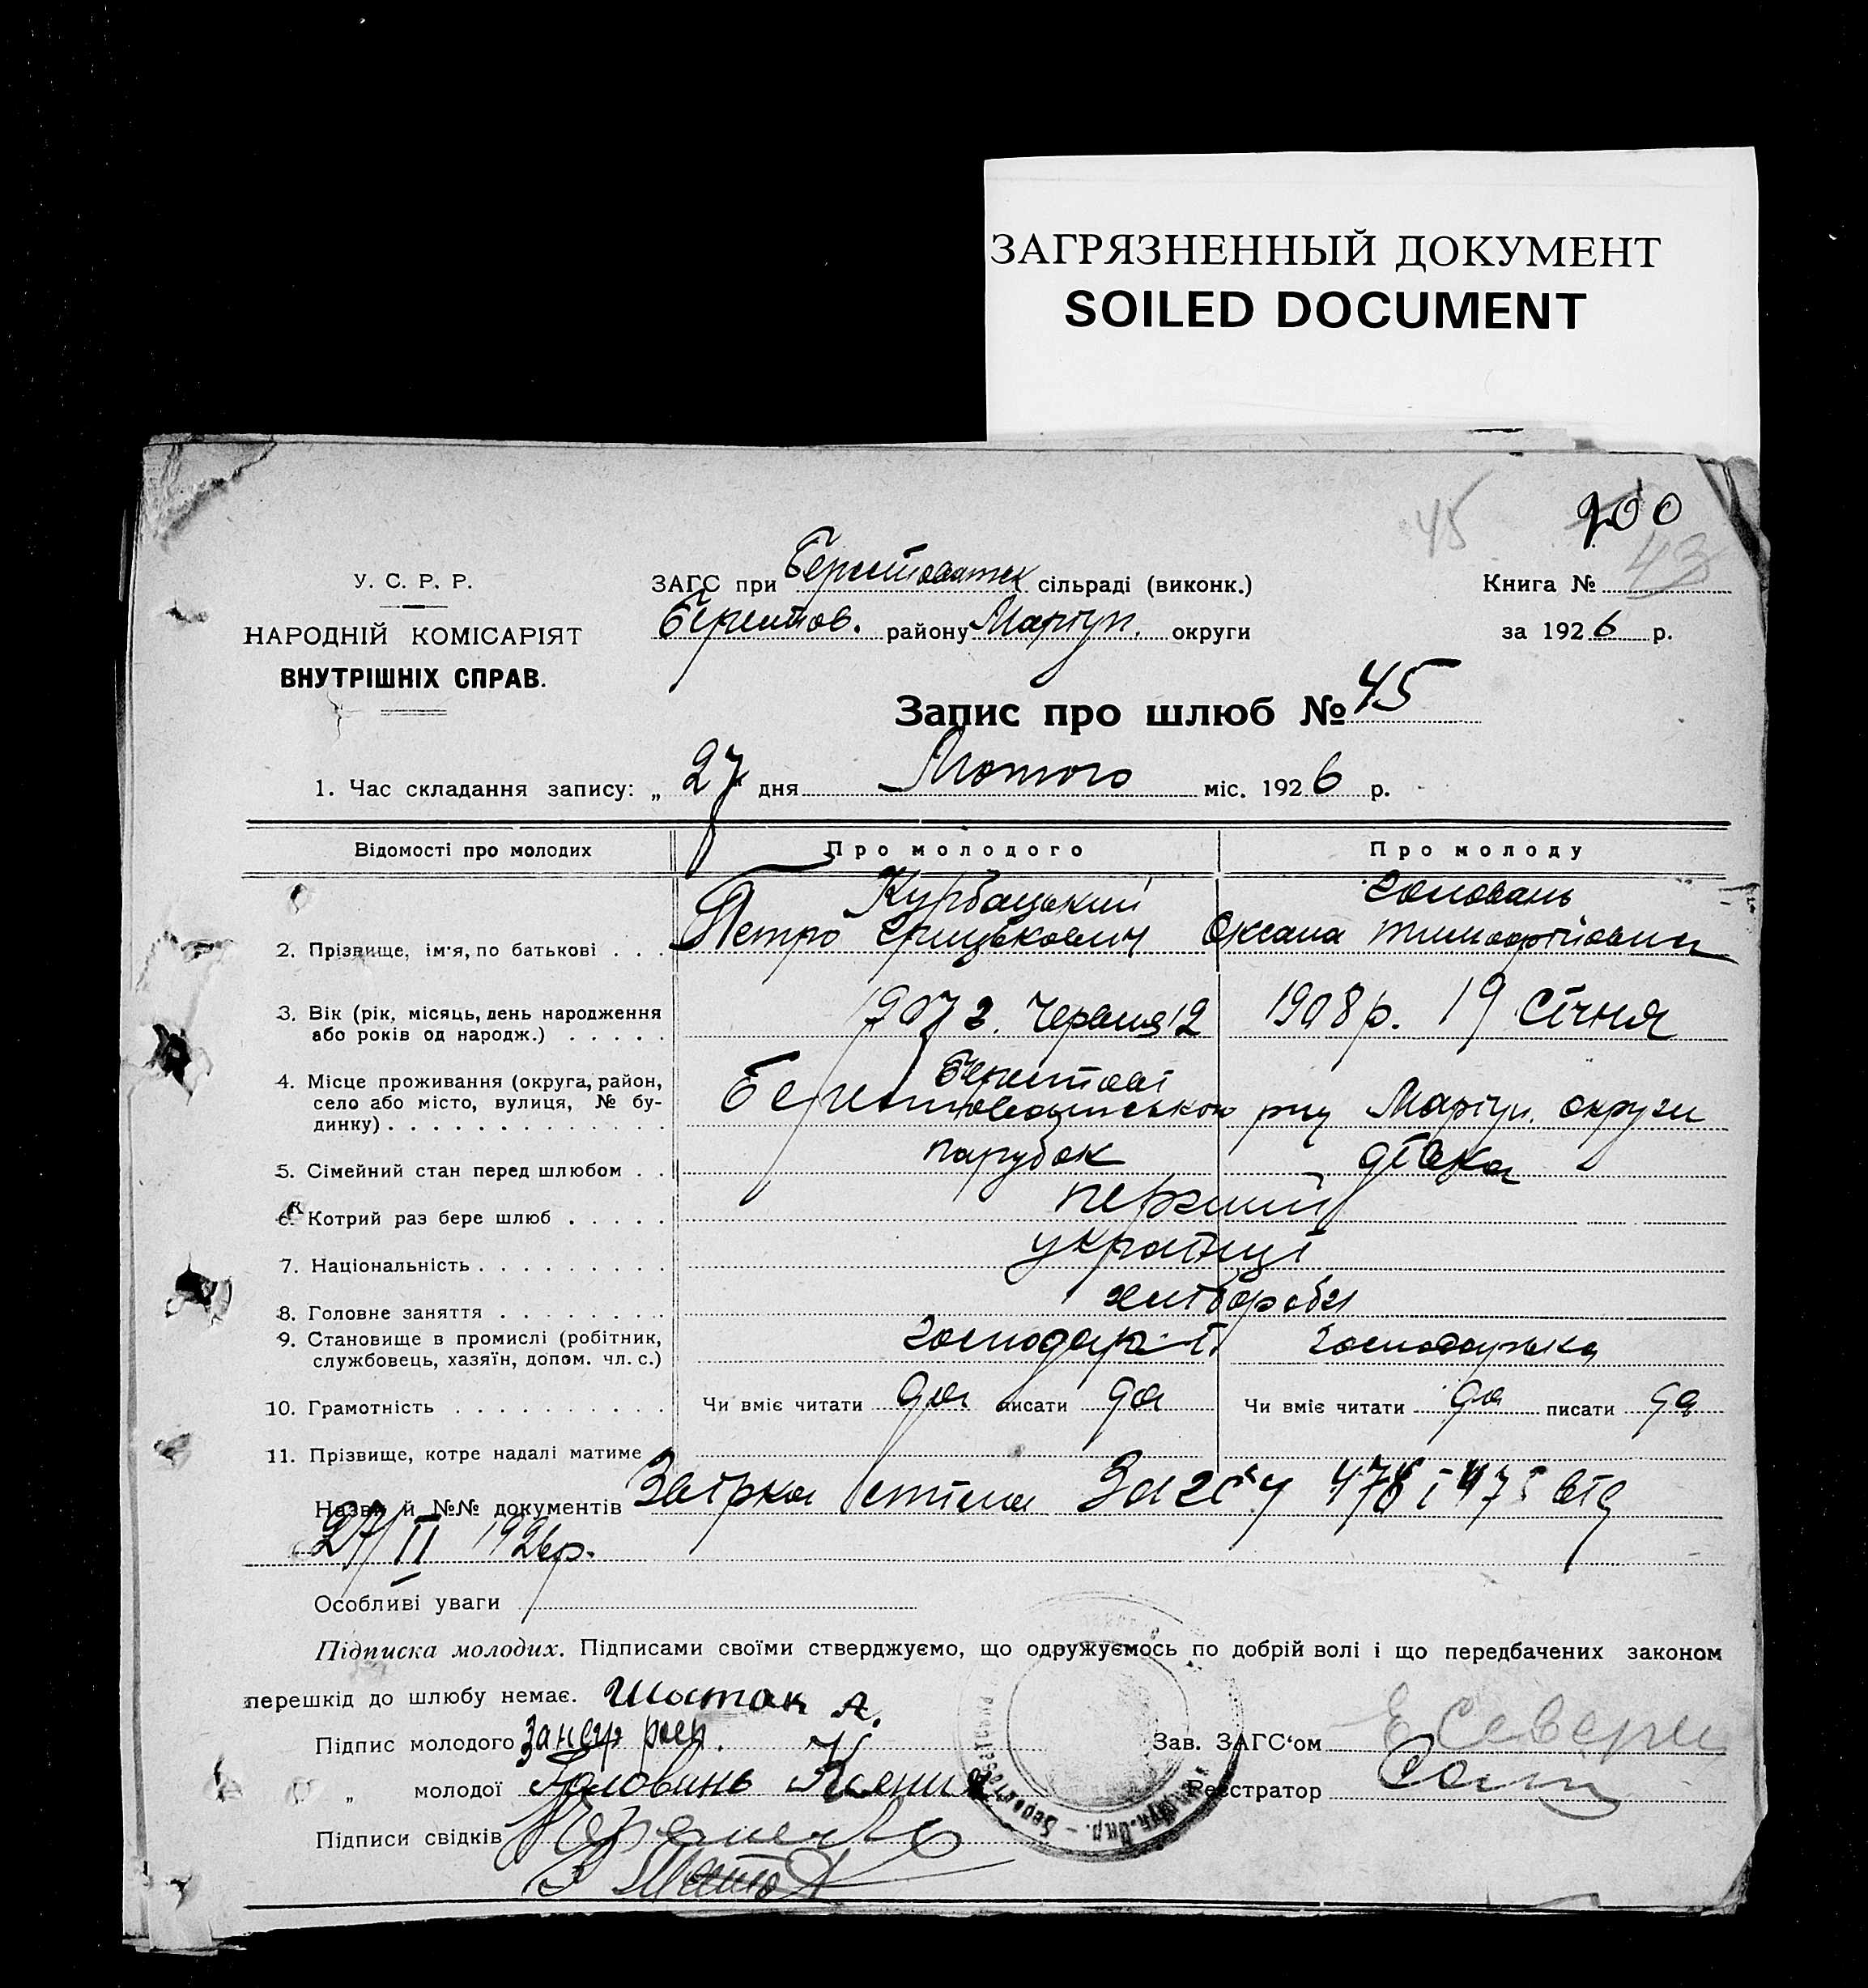 ЗАГРЯЗНЕННЫЙ ДОКУМЕНТ
SOILED DOCUMENT
45
43
У. С. Р. Р.
НАРОДНІЙ КОМІСАРІЯТ
ВНУТРІШНІХ СПРАВ.
ЗАГС при Берестоватск сільраді (виконк.)
Берестов. району Маріуп. округи
Книга №
за 1926 р.
Запис про шлюб № 45
1. Час складання запису: „ 27 дня Лютого міс. 1926 р.
Відомості про молодих Про молодого Про молоду
Курбацький Головань
2. Прізвище, ім'я, по батькові . . . Петро Грицькович Оксана Тимофіївна
3. Вік (рік, місяць, день народження
або років од народж.) . . . . . 1907 Червня 12 1908 р. 19 Січня
4. Місце проживання (округа, район,
село або місто, вулиця, № бу-
динку) . . . . . . . . . . . . . Берестові
рну Маріуп. округи
5. Сімейний стан перед шлюбом . . парубок дівка
6. Котрий раз бере шлюб . . . . . перший
7. Національність . . . . . . . . . українці
8. Головне заняття . . . . . . . . хлібороби
9. Становище в промислі (робітник,
службовець, хазяїн, допом. чл. с.) господар господарька
10. Грамотність . . . . . . . . . . Чи вміє читати да писати да Чи вміє читати да писати да
11. Прізвище, котре надалі матиме
Назви й №№ документів Загс'у 478 і 475 від
27/II 1926р.
Особливі уваги
Підписка молодих. Підписами своїми стверджуємо, що одружуємось по добрій волі і що передбачених законом
перешкід до шлюбу немає. Шостак А.
Підпис молодого
„ молодої Головань Ксения
Підписи свідків
Зав. ЗАГС'ом Е Северин
Реєстратор